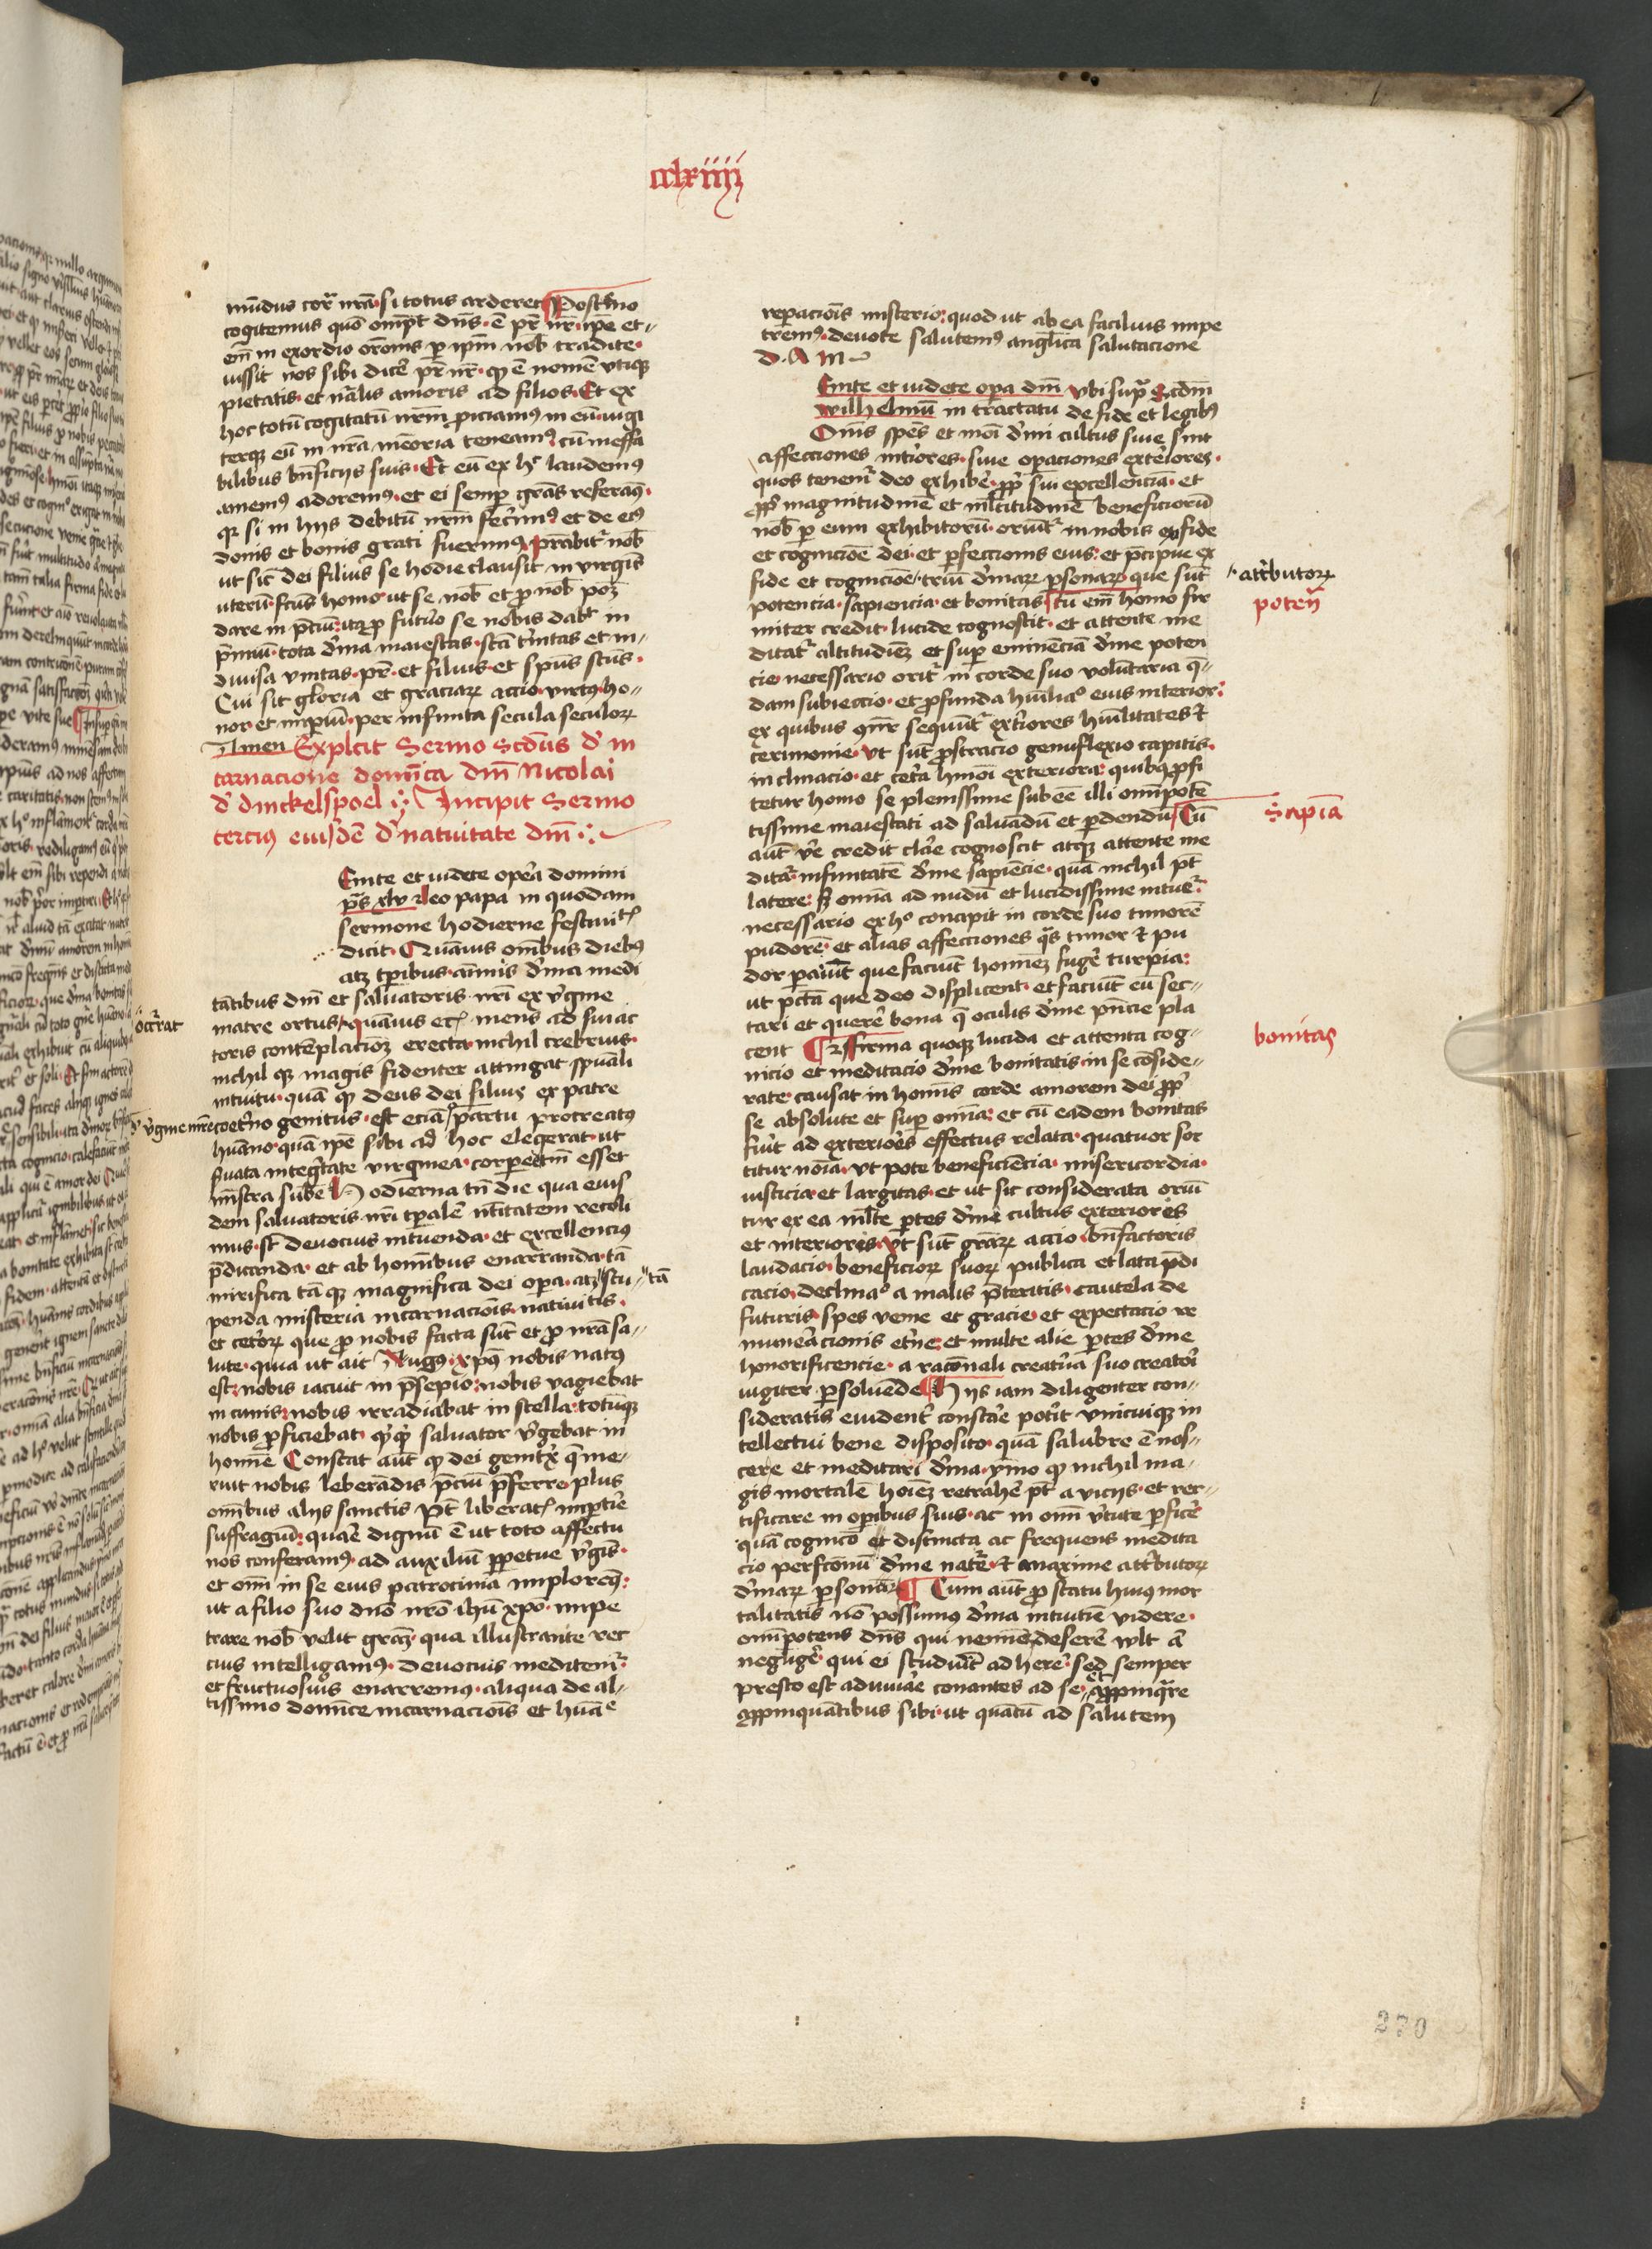 cclxiiij
mūdus cor̄ nr̄a si totus arderet Postmo
cogitemus quō omp̄t dn̄s ē pr̄ nr̄ ip̄e et
em̄ in exordio orōnis per ip̄m nob̄ tradite
iussit nos sibi dicere pr̄ nr̄ qđ ē nomē vtiqȝ
pietatis et nālis amoris ad filios Et ex
hoc totū cogitatū nr̄m proiciamus in eū iugi
terqȝ eū in nr̄a mēoria teneamꝰ cū ineffa
bilibus bn̄ficijs suis Et eū ex hͦ laudemꝰ
amemꝰ adoremꝰ et ei semper grās referamꝰ
qꝛ si in hijs debitū nr̄m fecimꝰ et de eiꝰ
donis et bonis grati fuerimus prābitr̄ nob̄
ut sic dei filius se hodie clausit in virgīs
uterū fcūs homo ut se nob̄ et pro nob̄ poꝫ
dare in p̄ciū itaqȝ futuro se nobis dabit in
p̄miū tota d'ina maiestas sctā t'nitas et in
diuisa vnitas pr̄ et filius et spūs scūs
Cui sit gloria et graciarꝝ accio virtus ho
nor et imperiū per infinita secula seculorꝝ
Amen Explicit Sermo Scdūs d' in
carnacione domīca dm̄ Nicolai
d' dinckelspoel Incipit Sermo
tercius eiusdē d' natiuitate dm̄
Enite et videte opera domini
ps̄ xlv leo papa in quodam
sermone hodierne festiuit̄
dicit Quāuis omībus diebꝰ
atqȝ tp̄ibus animis d'ina medi
tātibus dm̄ et saluatoris nr̄i ex v'gine
occ̄rat
matre ortus quāuis et mens ad sui ac
toris contēplacionē erecta nichil crebrius
nichil qȝ magis fidenter attingat spūali
intuitu quā qđ deus dei filius ex patre
coet'no genitus est eciā partu procreatꝰ
hūano quā ip̄e sibi ad hoc elegerat ut
suata integ'tate virginea
mīstra Hodierna tn̄ die qua eius
dem saluatoris nr̄i tp̄alē n̄titatem recoli
mus st̄ deuocius intuenda et excellencius
p̄dicanda et ab homībus enarranda tā
mirifica tā qȝ magnifica dei opera atqȝ stu tā
penda misteria incarnacioīs natiuitīs
et ceterorꝝ que pro nobis facta sūt et pro nr̄a sa
lute quia ut ait Augꝰ xp̄us nobis natꝰ
est nobis iacuit in p̄sepio nobis vagiebat
in cunis nobis irradiabat in stella totūqȝ
nobis proficiebat qđ saluator v'gebat in
homīe Constat aūt qđ dei genit'x q̄ me
ruit nobis leberādis p̄ciū p̄ferre plus
omībus alijs sanctis pt̄ liberat̄ imp̄tīe
suffragiū quare dignū ē ut toto affectu
nos conferamꝰ ad auxiliū perpetue v'gīs
et om̄ in se eius patrocinia imploremꝰ
ut a filio suo dn̄o nr̄o ihū xpō impe
trare nob̄ velit grāꝫ qua illustrante rec
cius intelligamꝰ deuocius meditemꝰ
et fructuosius enarremus aliqua de al
tissimo domīce incarnacioīs et hūāe
reparacioīs misterio quod ut ab ea facilius impe
tremꝰ deuote salutemꝰ anglīca salutacione
d. A m
Enite et videte opera dm̄ vbi sup' Scdm̄
wilhelmū in tractatu de fide et legibꝰ
Om̄is spēs et modi d'ini cultus siue sint
affecciones int'iores siue operaciones exteriores
quos tenem' deo exhibere propt' sui excellenciā et
propt' magnitudinē et ml̄titudinē beneficiorū
nob̄ per eum exhibitorū oriūt' in nobis ex fide
et cognicioē dei et perfeccionis eius et p̄cipue ex
fide et cognicioē triū d'inarꝝ personarꝝ que sūt
att'butorꝝ
potencia sapiencia et bonitas Cū em̄ homo fir
poten̄
miter credit lucide cognoscit et attente me
ditat' altitudinēꝫ et super eminēciā d'ine poten
cie necessario orit' in corde suo volūtaria q̄
dam subieccio et profunda hūiliaꝰ eius interior
ex quibus qn̄r sequūt' ext'iores hūilitates et
cerimonie vt sūt prostracio genuflexio capitis
inclinacio et cet'a hmōi exteriora quibꝰ profi
tetur homo se plenissime subēe illi omīpotē
tissime maiestati ad saluādū et perdendū Cū
Sapīa
aūt v'e credit clāe cognoscit atqȝ attente me
ditat' infinitatē d'ine sapiēcie quā nichil pt̄
latere sꝫ omīa ad nudū et lucidissime intuer'
necessario ex hͦ concipit in corde suo timorē
pudorē et alias affecciones q̄s timor et pu
dor pariūt que faciūt homīeꝫ fugere turpia
ut pctā que deo displicent et faciūt eū sec
tari et querere bona q̄ oculis d'ine p̄ncie pla
cent Firma quoqȝ lucida et attenta cog
bonitas
nicio et meditacio d'ine bonitatis in se cōside
rate causat in homīs corde amorem dei propt'
se absolute et super omīa et cū eadem bonitas
fiūt ad exteriores effectus relata quatuor sor
titur noīa vt pote beneficiēcia misericordia
iusticia et largitas et ut sic considerata oriū
tur ex ea ml̄te partes d'ine cultus exteriores
et interiores vt sūt grārꝝ accio bn̄factoris
laudacio beneficiorꝝ suorꝝ publica et lata p̄di
cacio declinaꝰ a malis p̄teritis cautela de
futuris spes venie et gracie et expectacio re
muneracionis et'ne et multe alie partes d'ine
honorificencie a racōnali creatura suo creatori
iugiter persoluēde Hijs iam diligenter con
sideratis euident' constāe pot'it vnicuiqȝ in
tellectui bene disposito quā salubre ē nos
cere et meditari d'ina ymmo qđ nichil ma
gis mortalē hoīeꝫ retrahē pt̄ a vicijs et rec
tificare in operibus suis ac in omī v'tute proficē
quā cognicō et distincta ac frequens medita
cio perfcōnū d'ine nat'e et maxime att'butorꝝ
d'inarꝝ personarꝝ Cum aūt pro statu huius mor
talitatis nō possumꝰ d'ina intuitiē videre
omīpotens dn̄s qui neminē deserē wlt aū
negligē qui ei studuīt adherē sed semper
presto est adiuuāe conantes ad se appinq̄re
appinquātibus sibi ut quātū ad salutem
270